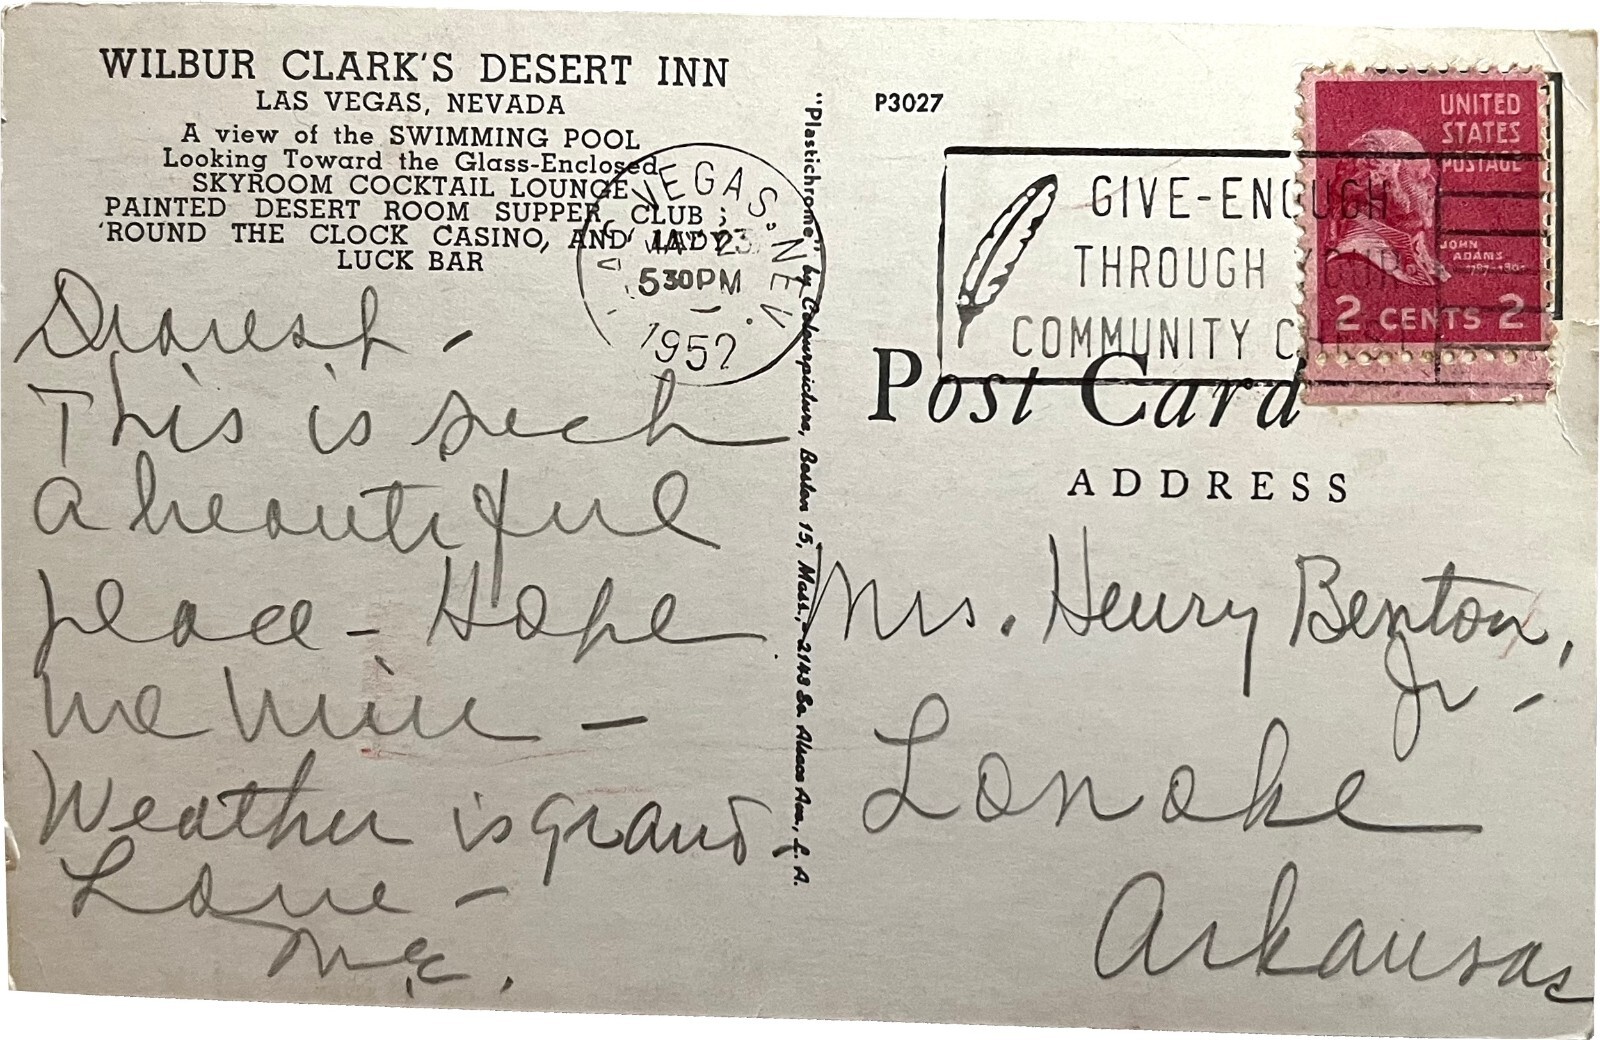 WILBUR CLARK'S DESERT INN
LAS VEGAS, NEVADA
A view of the SWIMMING POOL
Looking Toward the Glass-Enclosed
SKYROOM COCKTAIL LOUNGE
PAINTED DESERT ROOM SUPPER CLUB ;
'ROUND THE CLOCK CASINO, AND LADY
LUCK BAR
VEGAS. NEV.
23
5 30PM
1952
Dearest -
This is such
a beautiful
place - Hope
we win -
Weather is grand
Love -
M.E.
"Plastichrome" by Colourpicture, Boston 15, Mass., - 2143 So. Alsace Ave., L. A.
P3027
GIVE-ENOUGH
THROUGH YOUR
COMMUNITY CHEST
UNITED
STATES
POSTAGE
JOHN
ADAMS
2 CENTS 2
Post Card
ADDRESS
Mrs. Henry Benton,
Jr -
Lonoke
Arkansas